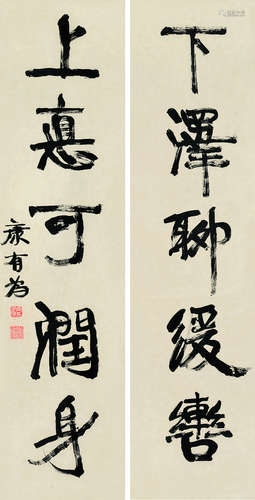 下澤聊緩轡
上悳可潤身
康有為